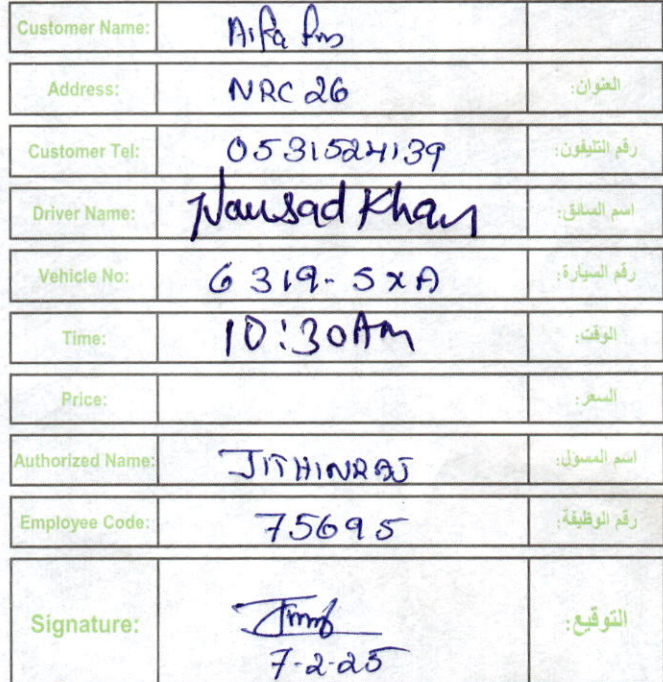 Customer Name:
Address: NRC 26 العنوان:
Customer Tel: 0531524139 رقم التليفون:
Driver Name: Nausad Khan اسم السائق:
Vehicle No: 6319-SXA رقم السيارة:
Time: 10:30Am الوقت:
Price: السعر:
Authorized Name: JITHINRAJ اسم المسول:
Employee Code: 75695 رقم الوظيفة:
Signature: التوقيع:
7-2-25